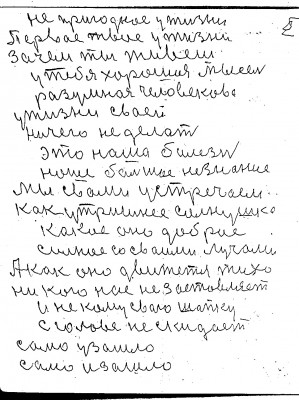 не пригодное у жизни
Первае твае у жизни
Зачем ты живеш
у тебя хорошия мысеи
разумная человекова
у жизни сваей
ничего не делат
это наша балезн
наше балшое незнание
Мы свами устречаем
как утришнее солнушко
какое оно добрае
силное сосваими лучами
А как оно движется тихо
ни кого нас не заставляет
и не кому сваю шапку
с голове не скидает
само узашло
само и зашло